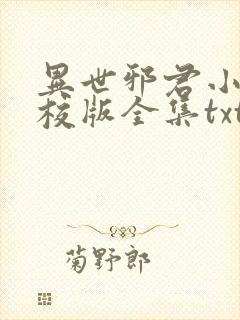 異世邪君小
校版全集txt
菊野郎